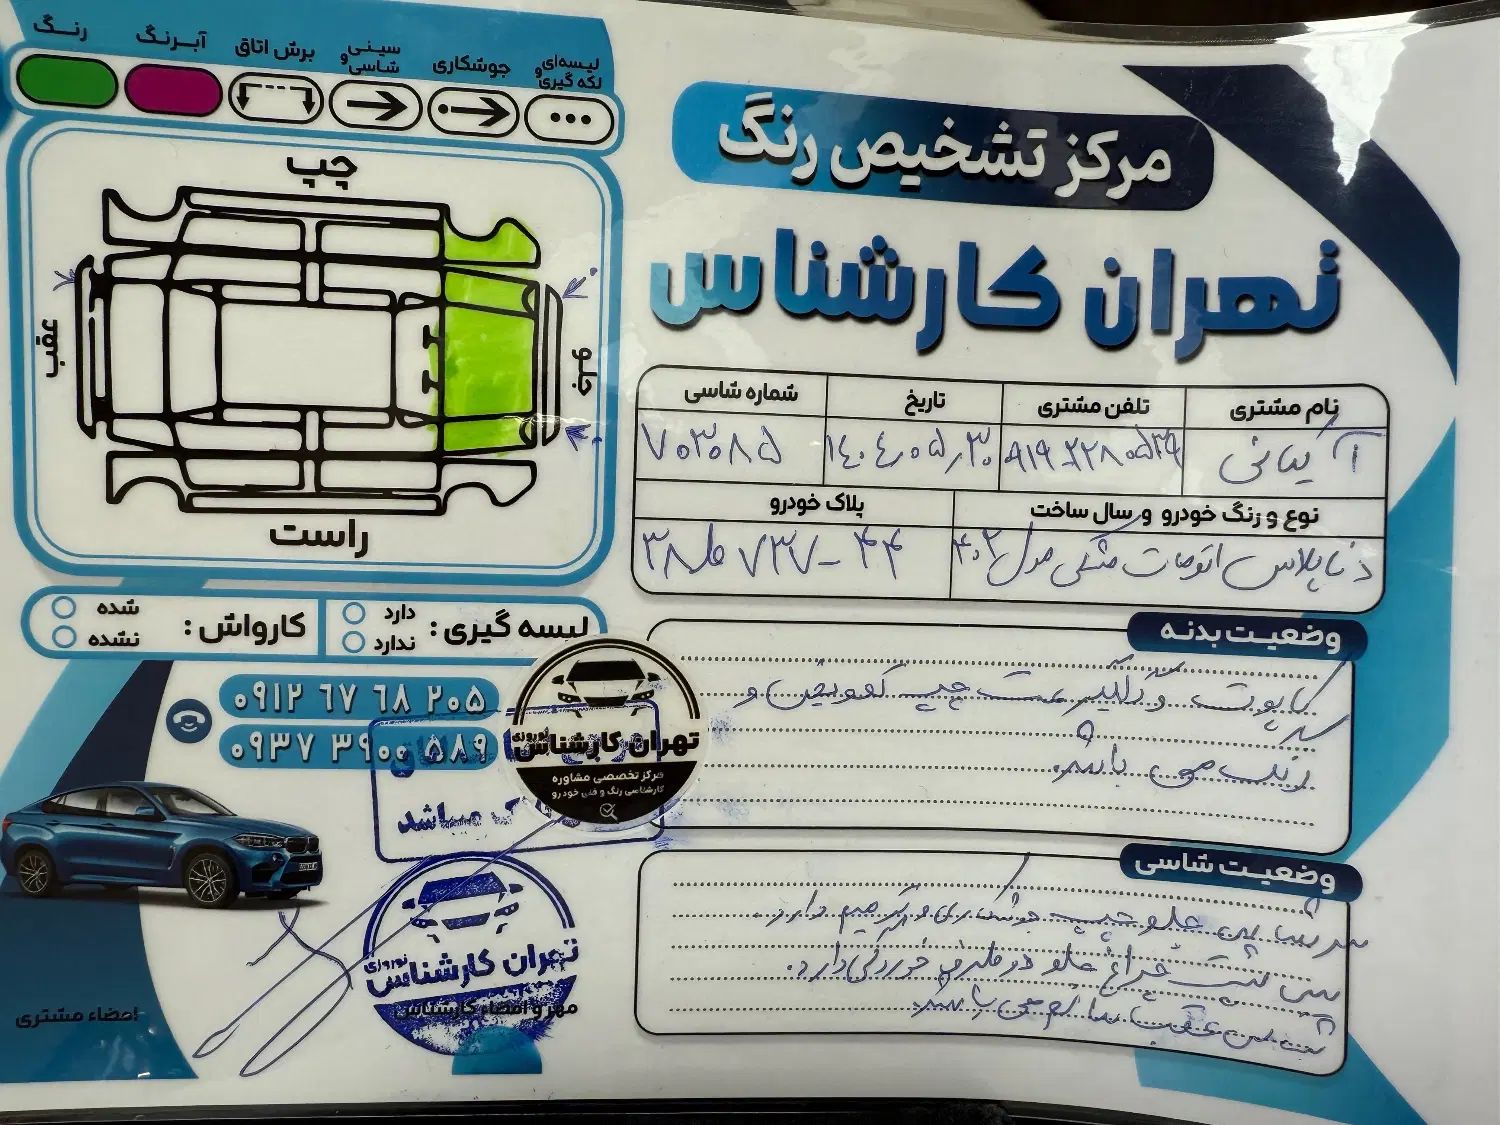 رنگ
آبرنگ
برش اتاق
سینی و شاسی
جوشکاری
لیسه‌ای و لکه گیری
چپ
عقب
جلو
راست
مرکز تشخیص رنگ
تهران کارشناس
نام مشتری
تلفن مشتری
تاریخ
شماره شاسی
آ کیانی
۱۴۰۴،۰۵،۳۰
۷۰۳۰۸۵
نوع و رنگ خودرو و سال ساخت
پلاک خودرو
دنا پلاس اتومات مشکی مدل ۴۰۲
۴۴ - ۷۳۷ ط ۳۸
لیسه گیری :
دارد
ندارد
کارواش :
شده
نشده
۰۹۱۲ ۶۷ ۶۸ ۲۰۵
۰۹۳۷ ۳۹۰۰ ۵۸۹
وضعیت بدنه
کاپوت و گلگیر سمت چپ تعویض و
رنگ می باشد
وضعیت شاسی
سر شاسی جلو چپ جوشکاری و ترمیم دارد.
سینی پشت چراغ جلو دو طرف خوردگی دارد.
شاسی عقب سالم می باشد.
تهران کارشناس
نوروزی
مرکز تخصصی مشاوره
کارشناسی رنگ و فنی خودرو
میباشد
تهران کارشناس
نوروزی
مهر و امضاء کارشناس
امضاء مشتری